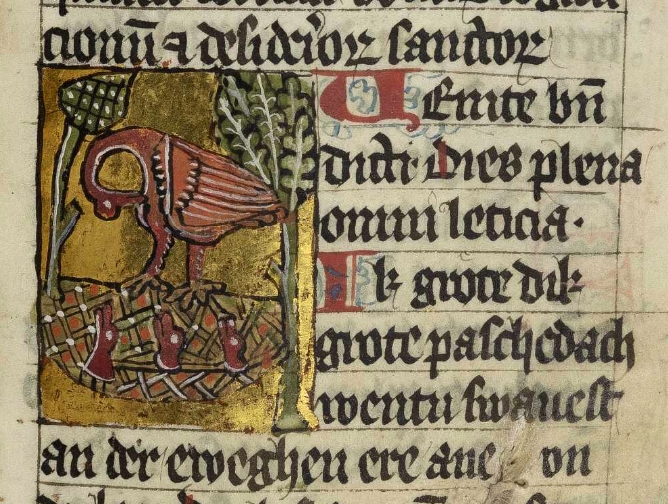 cionū ⁊ desiderioꝝ sanctoꝝ
Uenite bn̄
dicti dies plena
omni leticia·
Ik grote dik
grote paschedach
wentu swauest
an der eweghen ere aue un